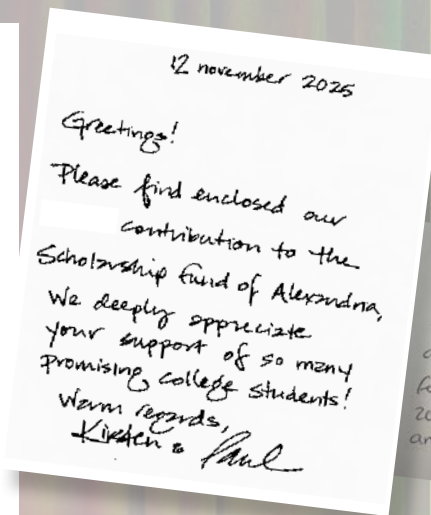 12 november 2025
Greetings!
Please find enclosed our
contribution to the
Scholarship Fund of Alexandria,
We deeply appreciate
your support of so many
promising college students!
Warm regards,
Kirsten & Paul